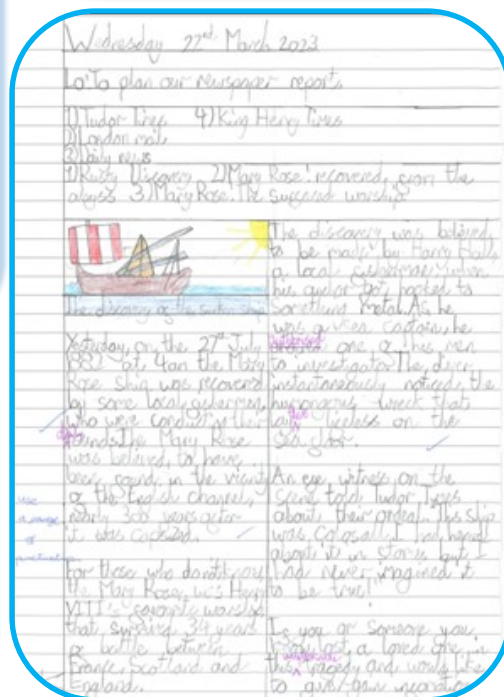 Wednesday 22nd March 2023
Lo: To plan our newspaper report.
1) Tudor Times 4) King Henry Times
2) London mail
3) Daily news
1) Rusty Discovery 2) Mary Rose recovered from the
abyss 3) Mary Rose. The warship
The discovery of the sunken ship
Yesterday, on the 27th July
at 4am the Mary
Rose ship was recovered
by some local fishermen,
who were conducting their
daily rounds. The Mary Rose
was believed, to have
been found, in the vicinity
of the English channel,
nearly 300 years after
it was capsized.
use
a range
of
punctuation
For those who
the Mary Rose, was Henry
VIII's favourite warship
that survived 34 years
a battle between
France, Scotland and
England.
The discovery was believed
to be made by Harry
a local fisherman when
his anchor got hooked to
something metal. As he
was a captain, he
one of his men
to investigate. The diver
instantaneously noticed, the
wreck that
lifeless on the
sea floor.
An eye witness on the
scene told Tudor Times
about their ordeal. This ship
was Colosall, I had heard
about it in stories but I
had never imagined it
to be true!
If you or someone you
a loved one in
this tragedy and would like
to give